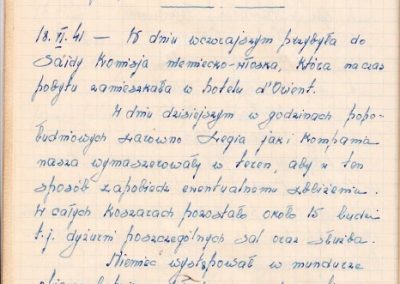 18.VI.41 — W dniu wczorajszym przybyła do
Saidy Komisja niemiecko-włoska, która na czas
pobytu zamieszkała w hotelu d'Orient.
W dniu dzisiejszym w godzinach popo-
łudniowych zarówno Legia jak i Kompania
nasza wymaszerowały w teren, aby w ten
sposób zapobiedz ewentualnemu zbliżeniu.
W całych koszarach pozostało około 15 ludzi
t.j. dyżurni poszczególnych sal oraz służba.
Niemiec wystąpował w mundurze